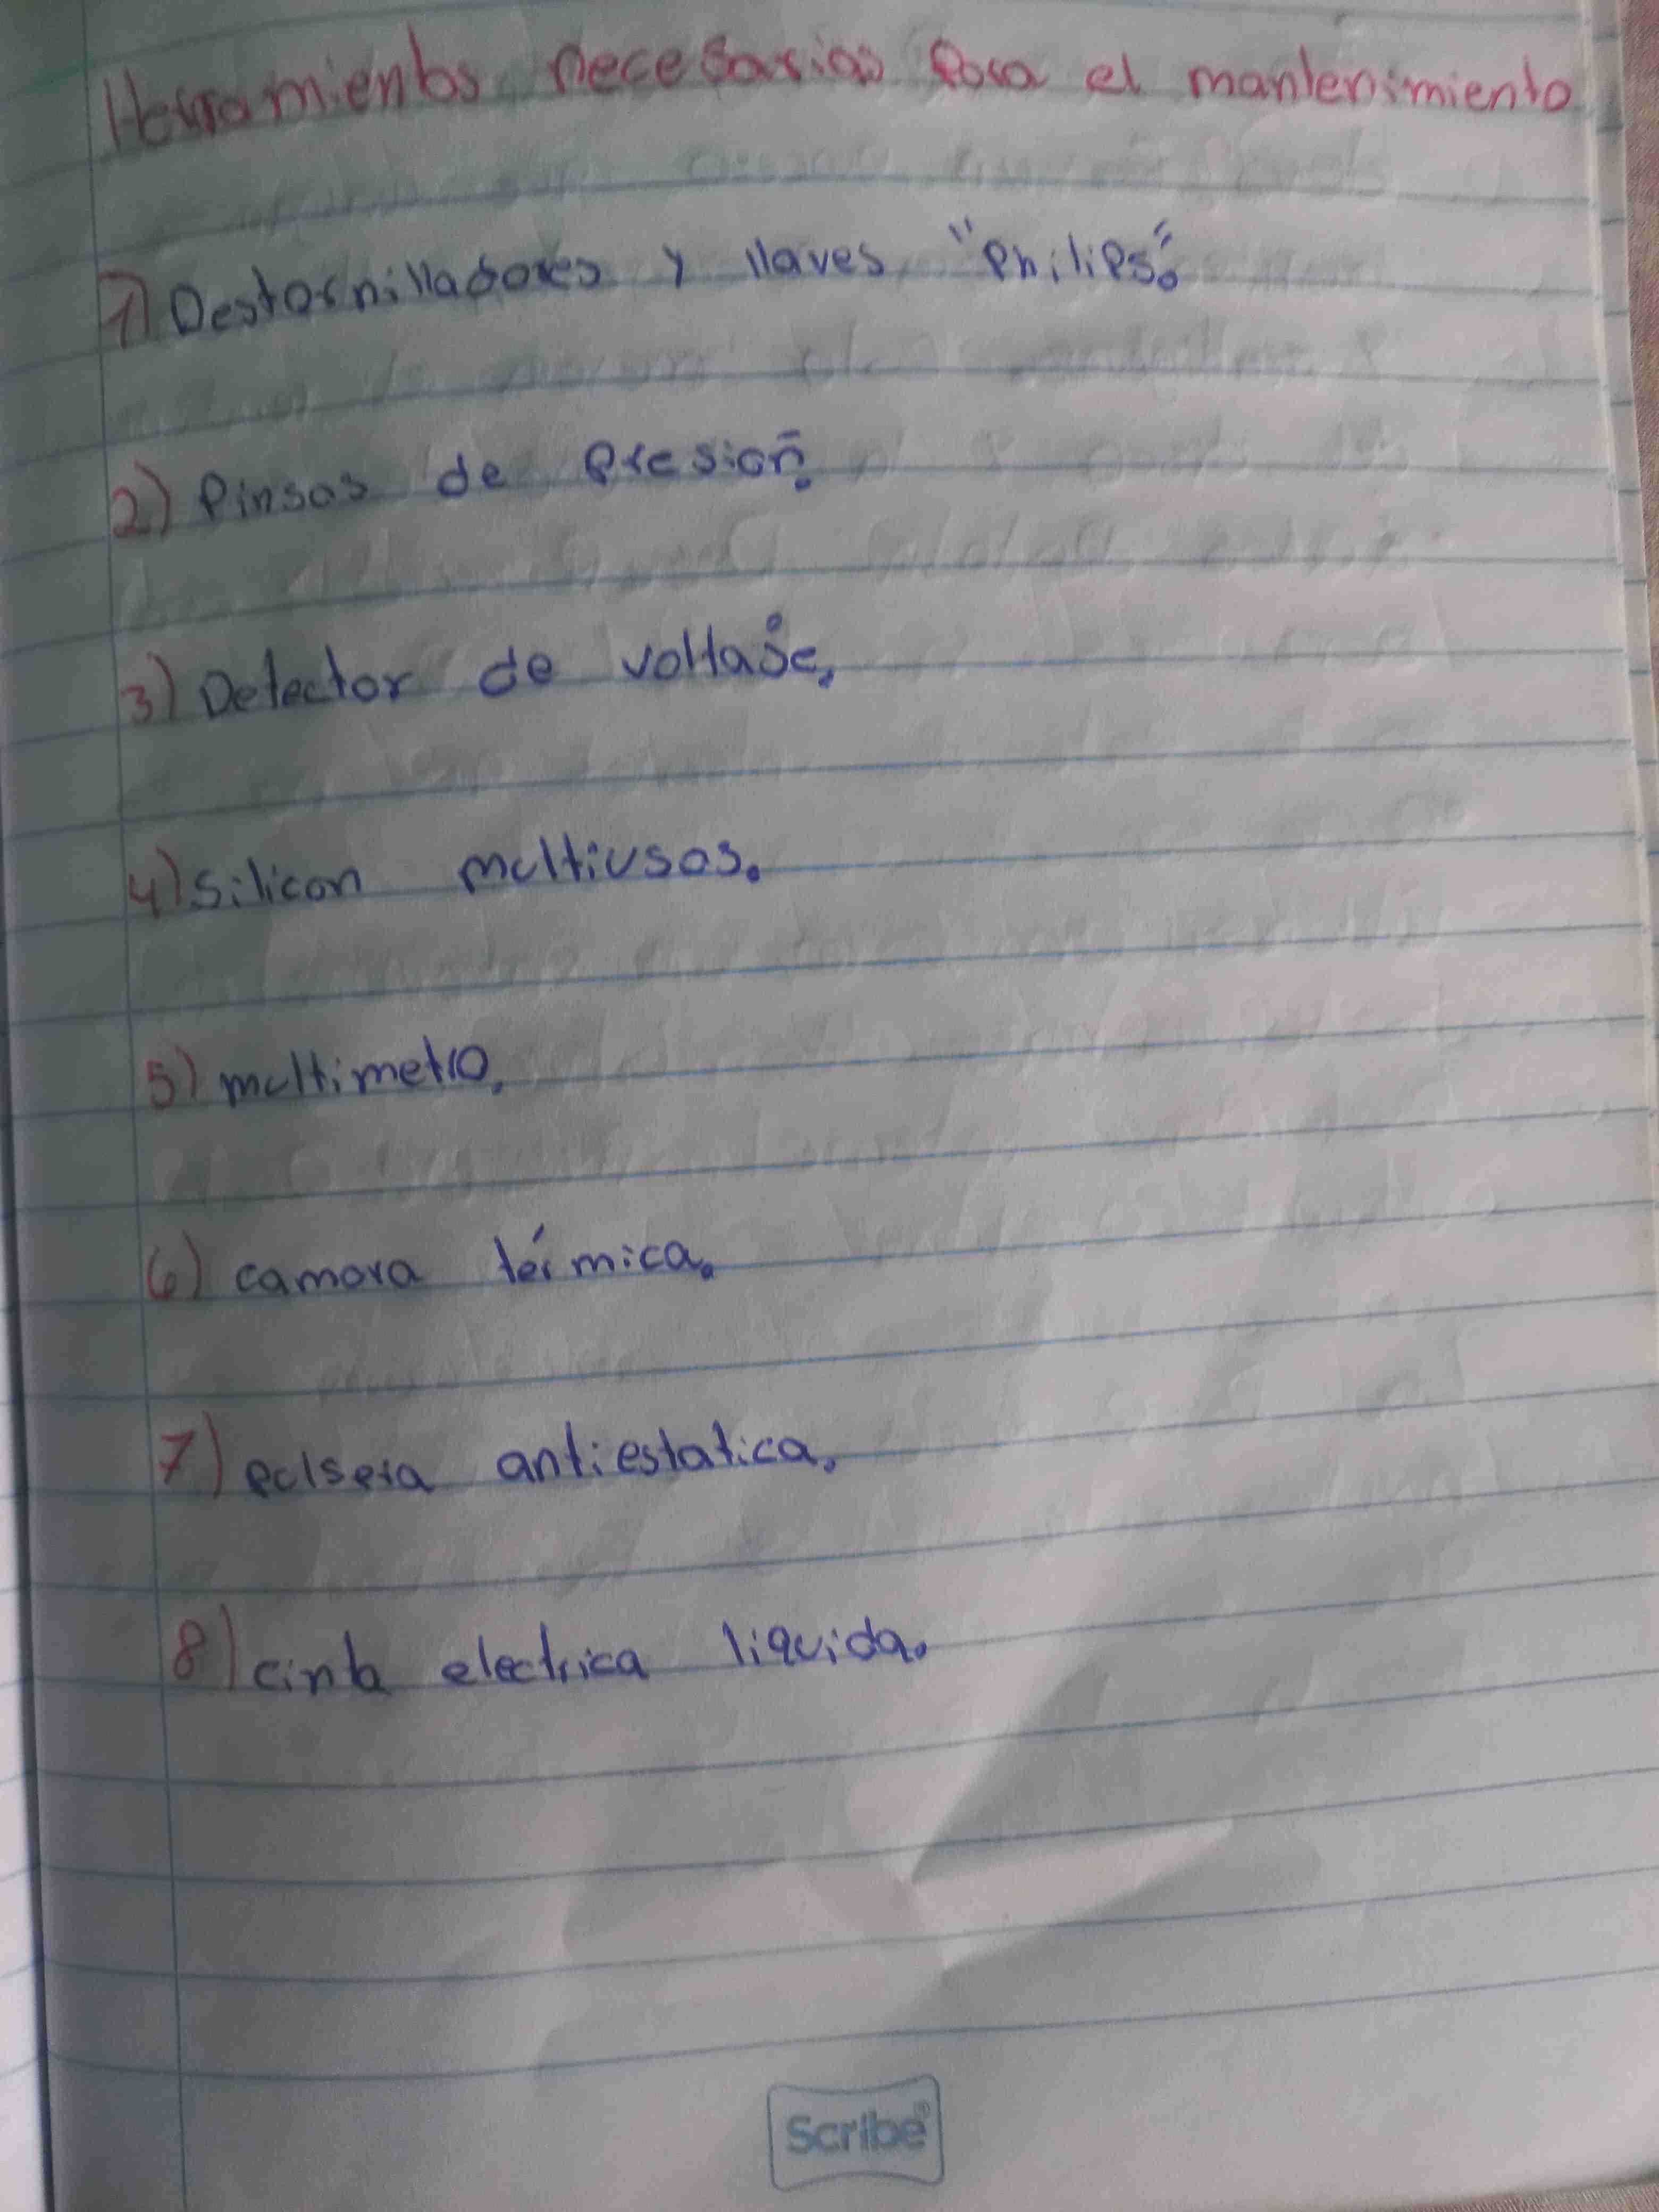 Herramientas necesarias para el mantenimiento
1) Destornilladores y llaves "Philips".
2) Pinsas de presion.
3) Detector de voltaje.
4) Silicon multiusos.
5) multimetro.
6) camara térmica.
7) pulsera antiestatica.
8) cinta electrica liquida.
Scribe®